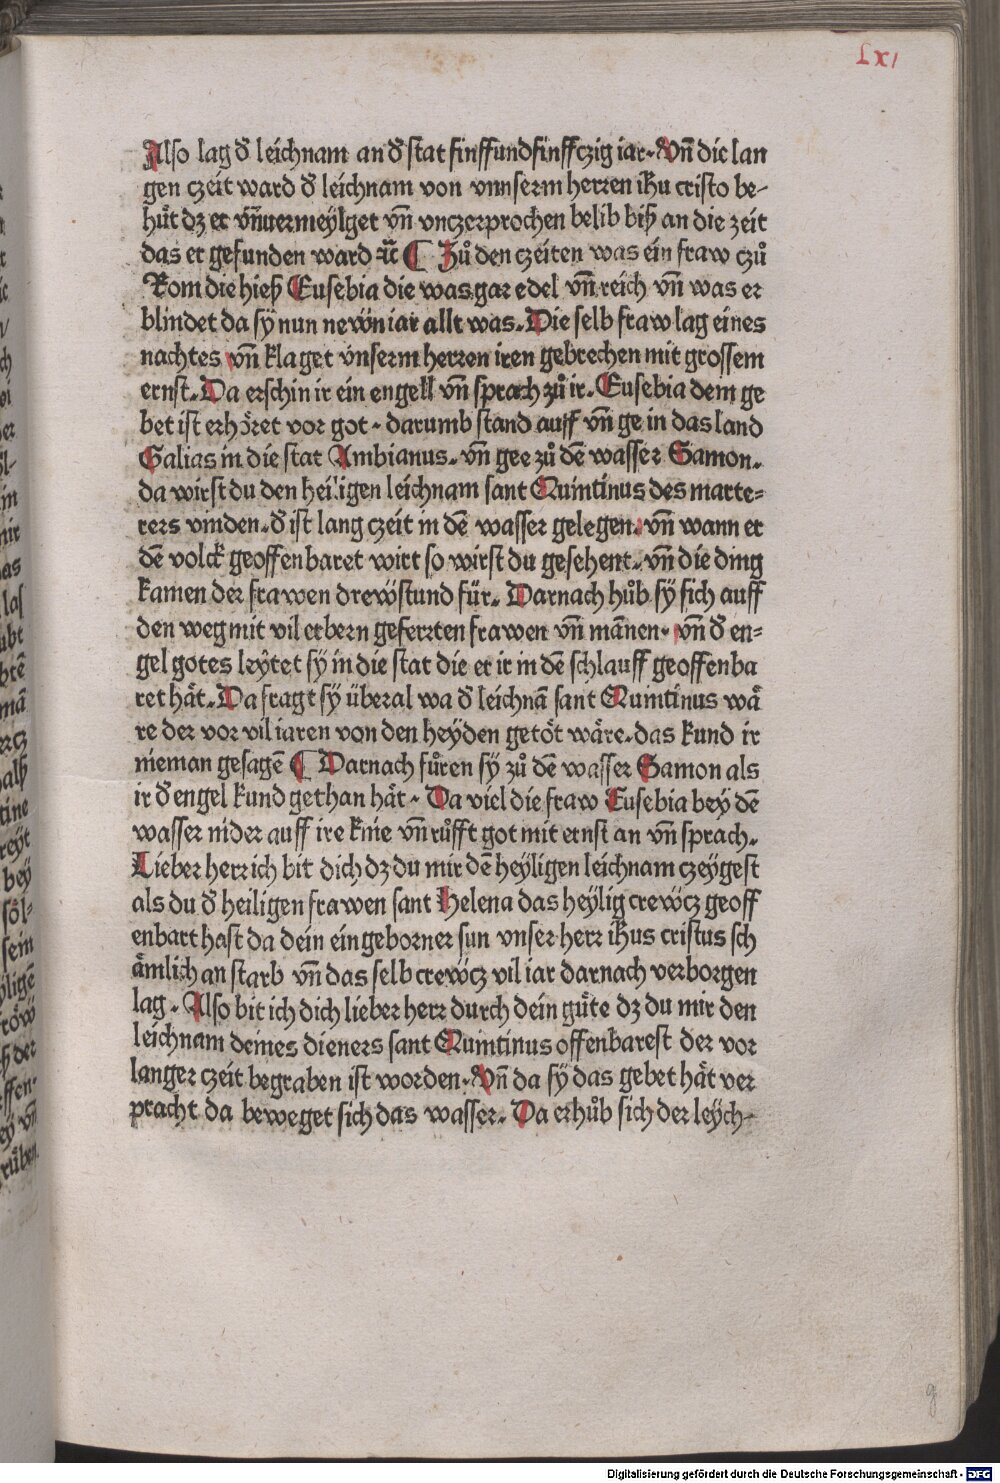 Lxi
Also lag d̕ leichnam an d̕ stat finffundfinffczig iar. Vn̄ die lan
gen czeit ward d̕ leichnam von vnnserm herren ih̄u cristo be-
huͤt dz er vn̄uermeÿlget vn̄ vnczerprochen belib biß an die zeit
das er gefunden ward ꝛc̄ ¶ Zuͦ den czeiten was ein fraw czuͦ
Rom die hieß Eusebia die was gar edel vn̄ reich vn̄ was er
blindet da sÿ nun newͤn iar allt was. Die selb fraw lag eines
nachtes vn̄ klaget vnserm herren iren gebrechen mit grossem
ernst. Da erschin ir ein engell vn̄ sprach zuͦ ir. Eusebia dein ge
bet ist erhoͤret vor got. darumb stand auff vn̄ ge in das land
Galias in die stat Ambianus. vn̄ gee zuͦ dē wasser Samon.
da wirst du den heiligen leichnam sant Quintinus des marte-
rers vinden. d̕ ist lang czeit in dē wasser gelegen. vn̄ wann er
dē volck geoffenbaret wirt so wirst du gesehent. vn̄ die ding
kamen der frawen drewͤstund fuͤr. Darnach huͦb sÿ sich auff
den weg mit vil erbern geferrten frawen vn̄ mānen. vn̄ d̕ en-
gel gotes leÿtet sÿ in die stat die er ir in dē schlauff geoffenba
ret haͤt. Da fragt sÿ uͤberal wa d̕ leichnā sant Quintinus waͤ
re der vor vil iaren von den heÿden getoͤt waͤre. das kund ir
nieman gesagē ¶ Darnach fuͦren sÿ zuͦ dē wasser Samon als
ir d̕ engel kund gethan haͤt. Da viel die fraw Eusebia beÿ dē
wasser nider auff ire knie vn̄ ruͦfft got mit ernst an vn̄ sprach.
Lieber herr ich bit dich dz du mir dē heÿligen leichnam czeÿgest
als du d̕ heiligen frawen sant Helena das heÿlig crewͤcz geoff
enbart hast da dein eingeborner sun vnser herr ih̄us cristus sch
aͤmlich an starb vn̄ das selb crewͤcz vil iar darnach verborgen
lag. Also bit ich dich lieber herr durch dein guͤte dz du mir den
leichnam deines dieners sant Quintinus offenbarest der vor
langer czeit begraben ist worden. Vn̄ da sÿ das gebet haͤt ver
pracht da beweget sich das wasser. Da erhuͦb sich der leÿch-
g
Digitalisierung gefördert durch die Deutsche Forschungsgemeinschaft - DFG